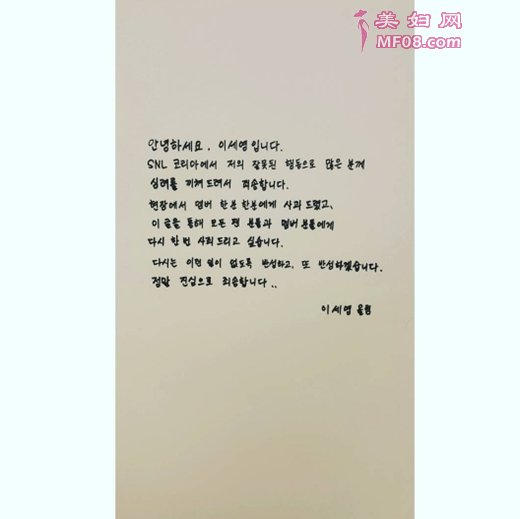 美妇网
MF08.com
안녕하세요. 이세영입니다.
SNL 코리아에서 저의 잘못된 행동으로 많은 분께
심려를 끼쳐드려서 죄송합니다.
현장에서 멤버 한분 한분에게 사과 드렸고,
이 글을 통해 모든 팬 분들과 멤버 분들에게
다시 한 번 사죄드리고 싶습니다.
다시는 이런 일이 없도록 반성하고, 또 반성하겠습니다.
정말 진심으로 죄송합니다..
이세영 올림